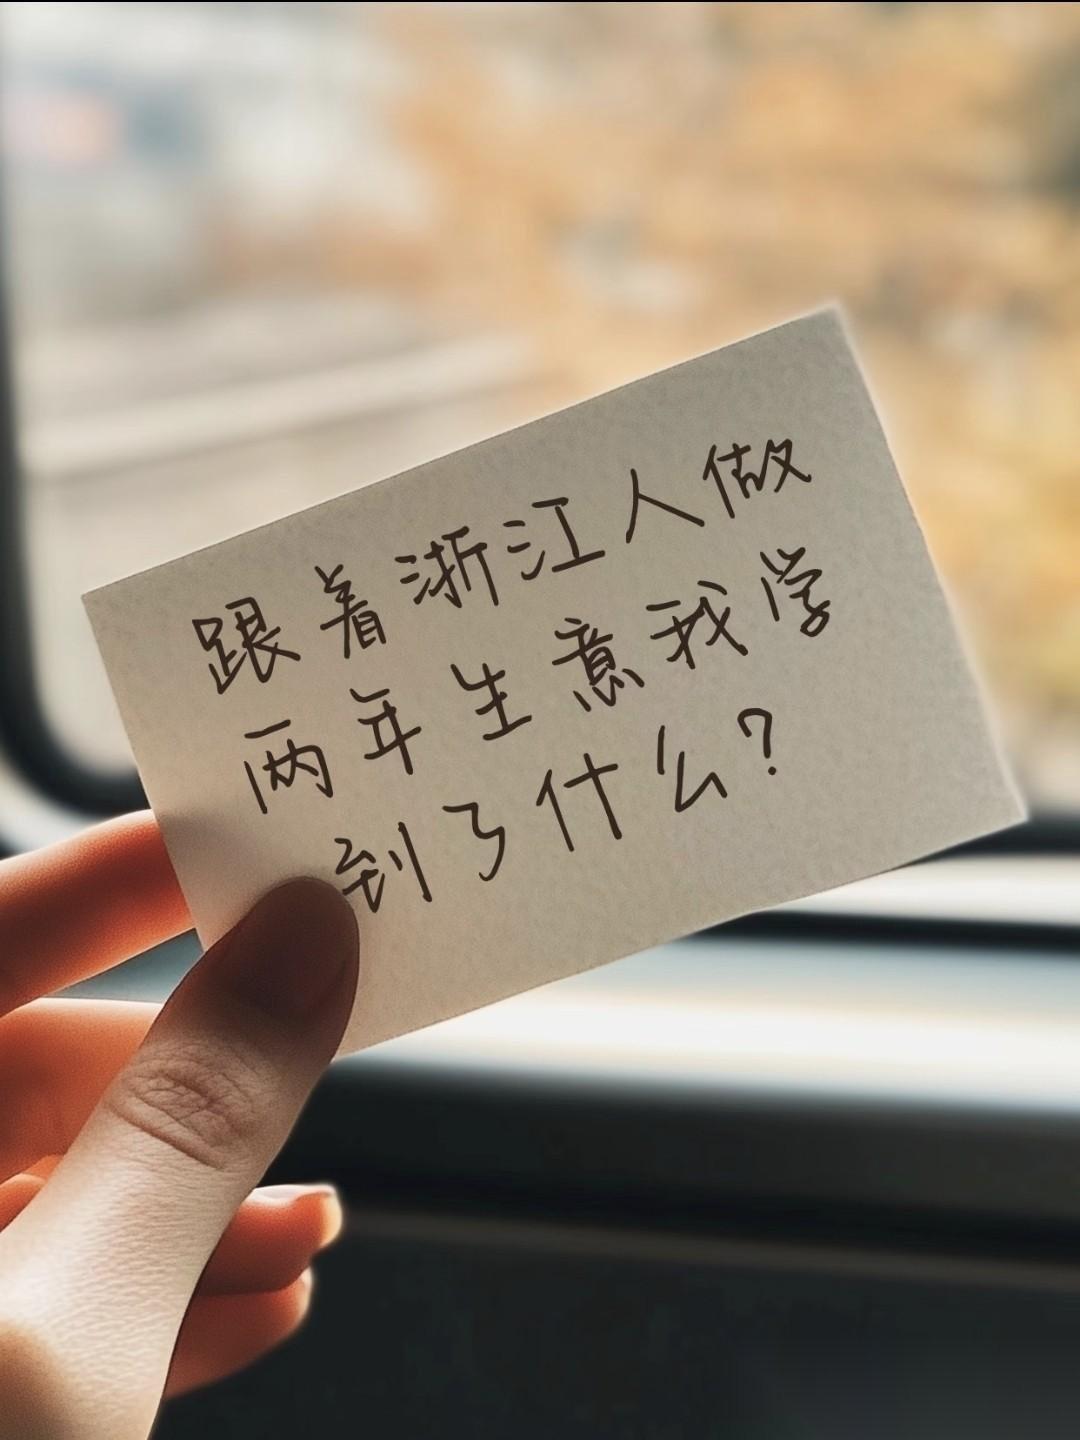 跟着浙江人做
两年生意我学
到了什么?